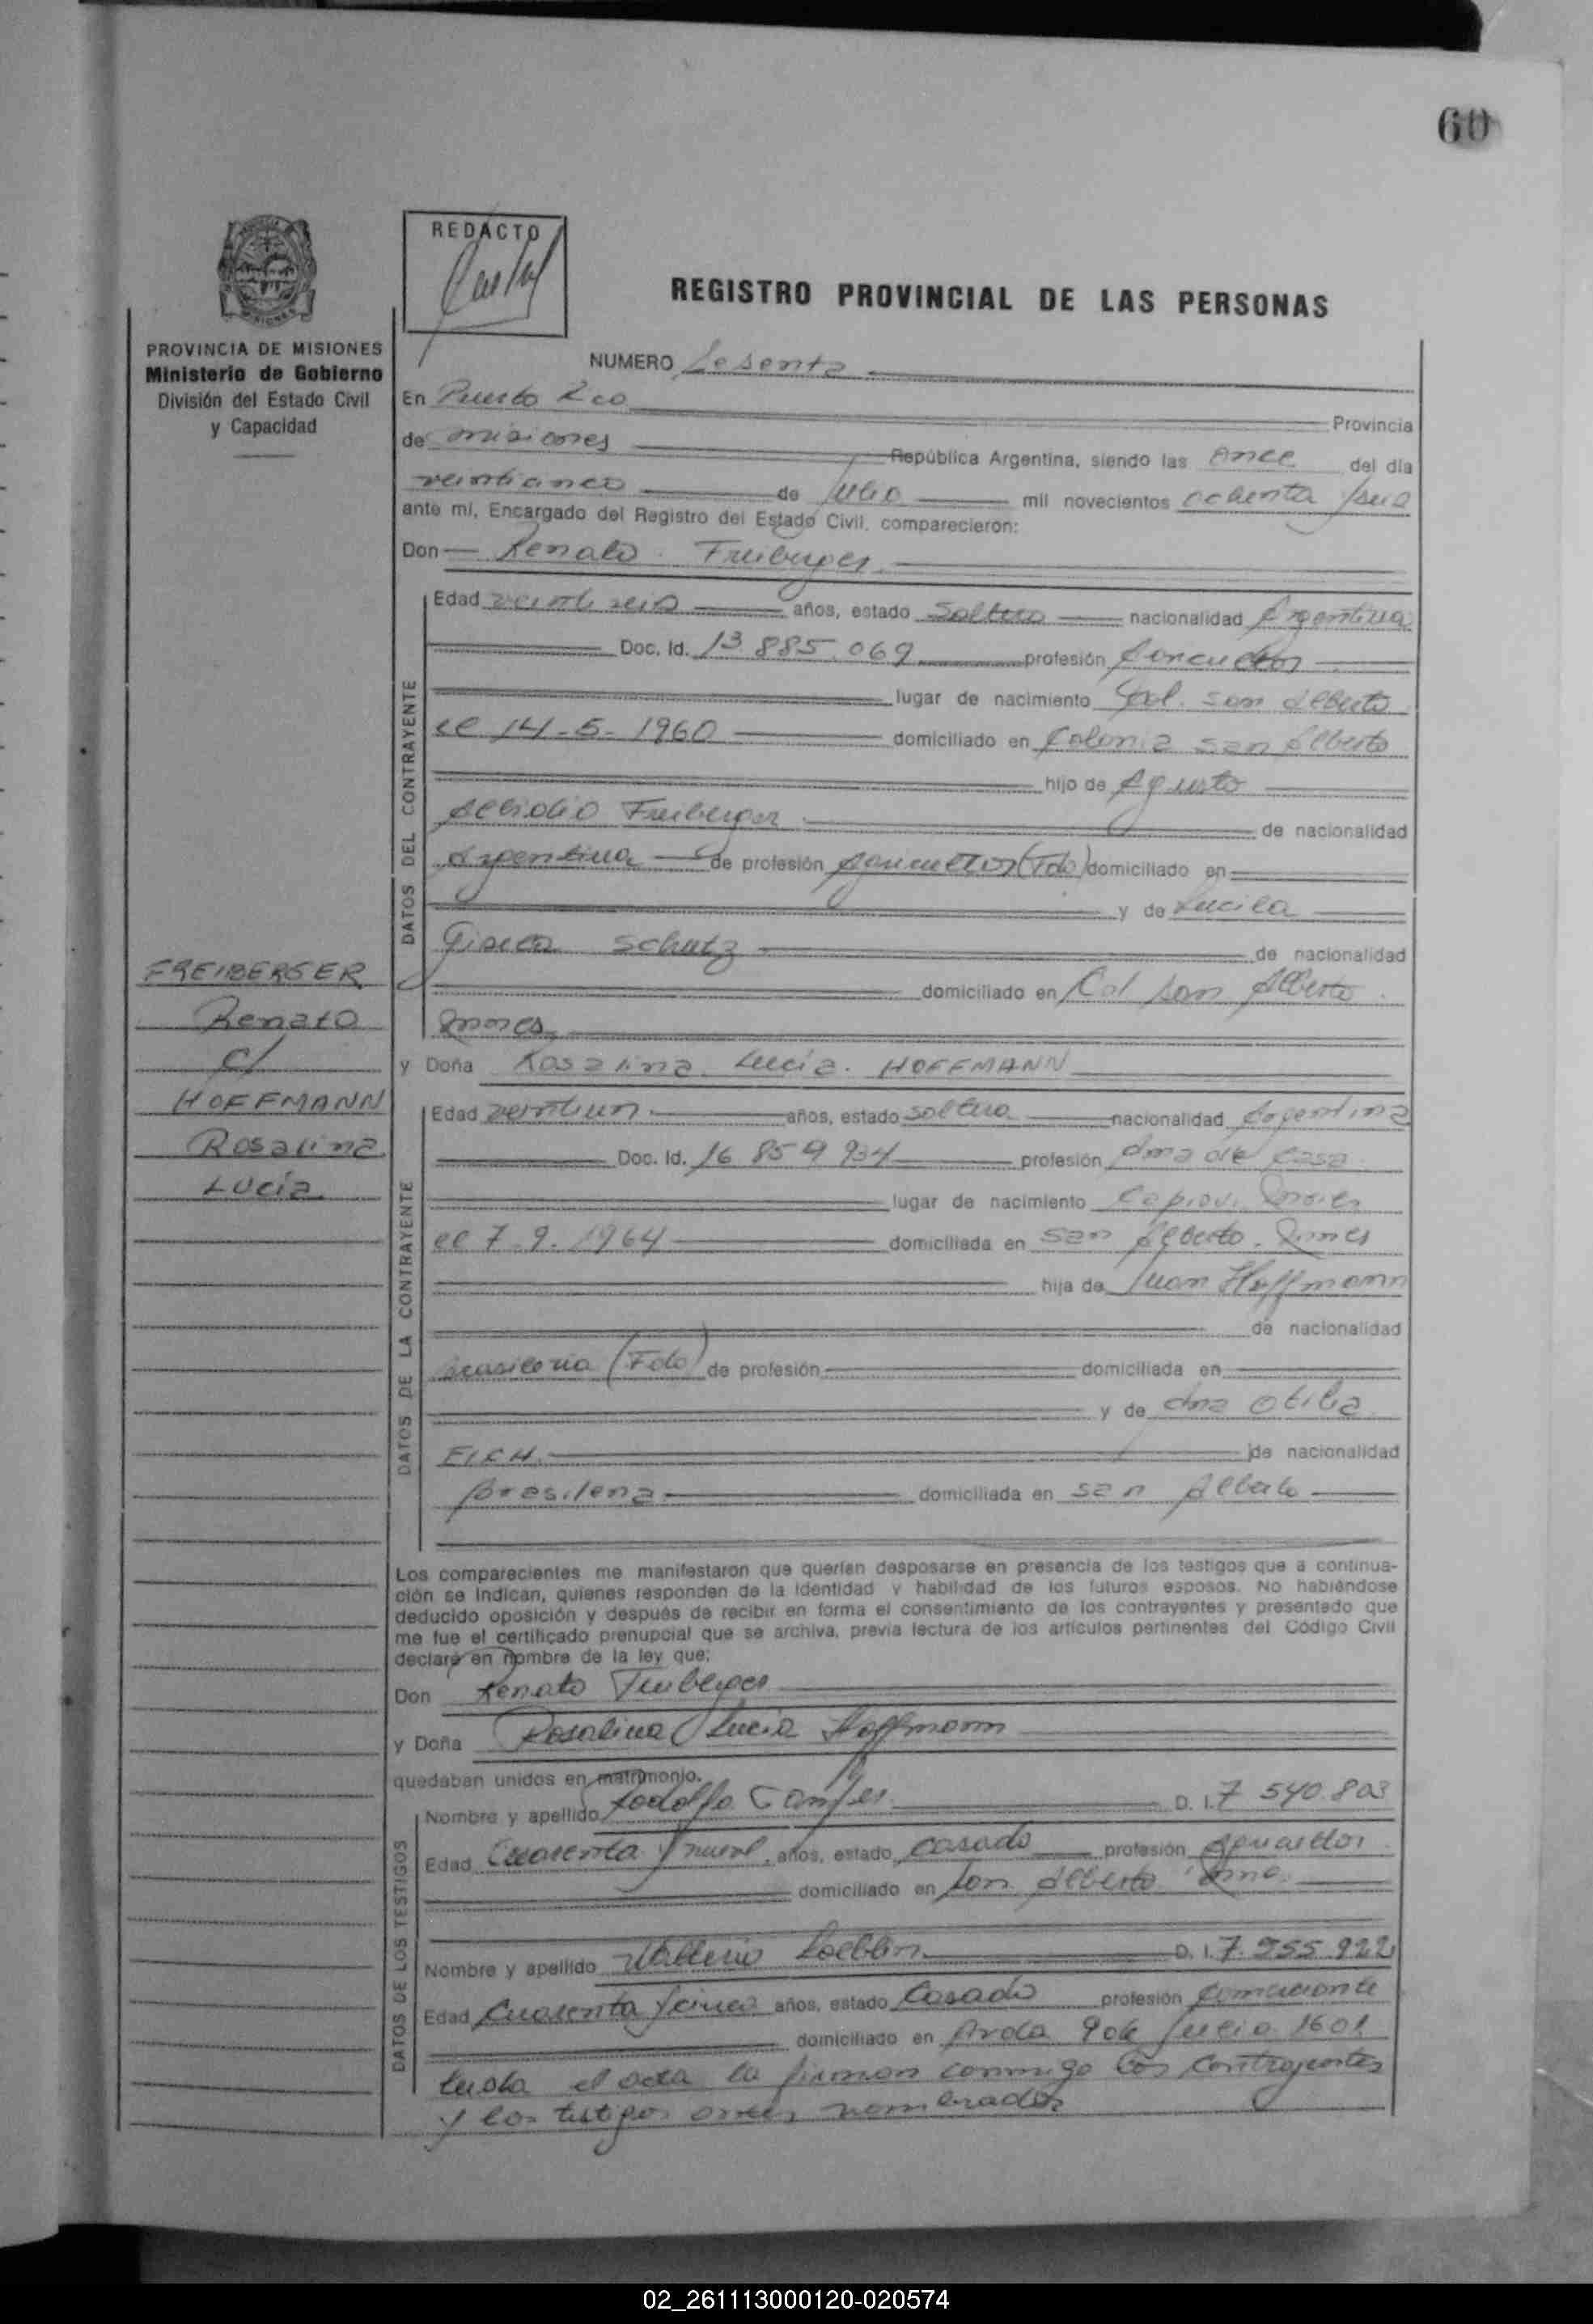 60
REDACTO
REGISTRO PROVINCIAL DE LAS PERSONAS
PROVINCIA DE MISIONES
Ministerio de Gobierno
División del Estado Civil
y Capacidad
NUMERO Sesenta
En Puerto Rico Provincia
de misiones República Argentina, siendo las once del día
veinticinco de Julio mil novecientos ochenta y seis
ante mí, Encargado del Registro del Estado Civil, comparecieron:
Don Renato Freiberger
DATOS DEL CONTRAYENTE
Edad veintiseis años, estado Soltero nacionalidad Argentina
Doc. Id. 13.885.069 profesión
lugar de nacimiento Col. San Alberto
el 14-5-1960 domiciliado en Colonia San Alberto
hijo de Agusto
Albidio Freiberger de nacionalidad
Argentina de profesión Agricultor (Fdo) domiciliado en
y de Lucila
Gisela Schutz de nacionalidad
domiciliado en Col San Alberto
FREIBERGER
Renato
c/
HOFFMANN
Rosalina
Lucía
y Doña Rosalina Lucía HOFFMANN
DATOS DE LA CONTRAYENTE
Edad veintiun años, estado soltera nacionalidad Argentina
Doc. Id. 16 859 934 profesión Ama de Casa
lugar de nacimiento Capiovi
el 7.9.1964 domiciliada en San Alberto
hija de Juan Hoffmann
de nacionalidad
brasileria (Fdo) de profesión domiciliada en
y de Ana Otilia
EICH de nacionalidad
brasilena domiciliada en San Alberto
Los comparecientes me manifestaron que querían desposarse en presencia de los testigos que a continua-
ción se indican, quienes responden de la identidad y habilidad de los futuros esposos. No habiéndose
deducido oposición y después de recibir en forma el consentimiento de los contrayentes y presentado que
me fue el certificado prenupcial que se archiva, previa lectura de los artículos pertinentes del Código Civil
declaré en nombre de la ley que:
Don Renato Freiberger
y Doña Rosalina Lucia Hoffmann
quedaban unidos en matrimonio.
DATOS DE LOS TESTIGOS
Nombre y apellido Rodolfo D. I. 7 540 803
Edad Cuarenta y nueve años, estado Casado profesión Agricultor
domiciliado en San Alberto
Nombre y apellido D. I. 7.955.922
Edad Cuarenta y cinco años, estado Casado profesión Comerciante
domiciliado en Avda 9 de Julio 1601
Leida el acta la firman conmigo los contrayentes
y los testigos antes nombrados
02_261113000120-020574